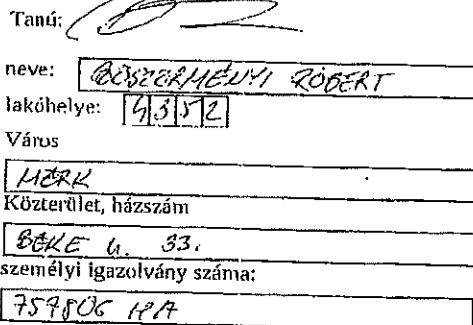 Tanú:
neve: BÖSZÖRMÉNYI RÓBERT
lakóhelye: 4352
Város
MÉRK
Közterület, házszám
BÉKE u. 33.
személyi igazolvány száma: